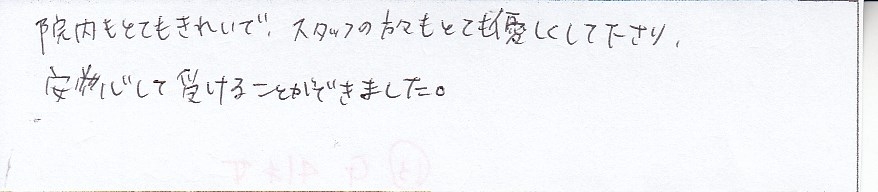 院内もとてもきれいで、スタッフの方々もとても優しくして下さり、
安心して受けることができました。